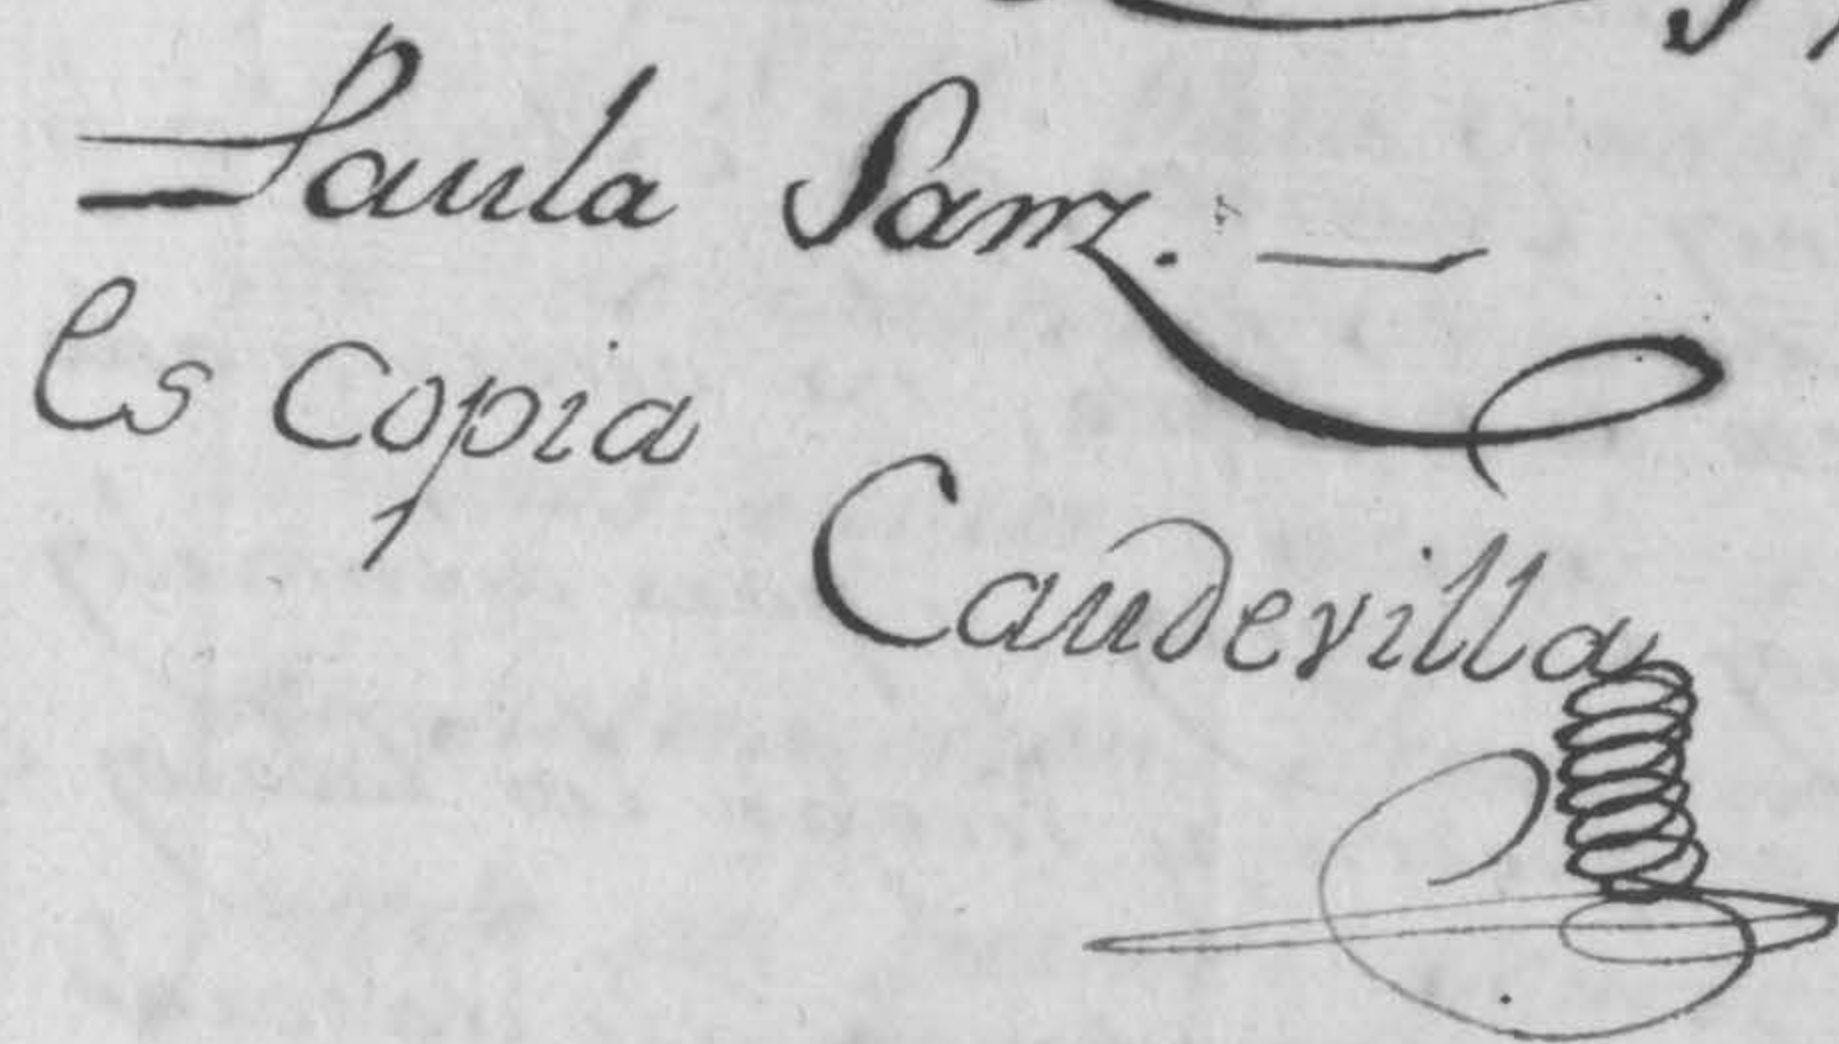 Paula Sanz. —
Es copia
Caudevilla